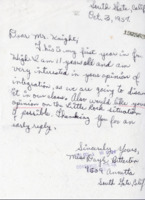 South Gate, Calif.
Oct. 3, 1957.
Dear Mr. Knight,
This is my first year in Jr.
High. I am 11 years old and am
very interested in your opinion of
integration, as we are going to discuss
it in our class. Also would like your
opinion on the Little Rock situation
if possible. Thanking you for an
early reply.
Sincerely Yours,
Miss
South Gate, Calif.